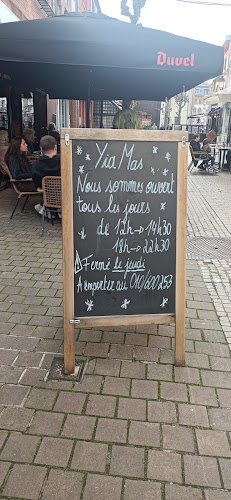 Duvel
Yia Mas
Nous sommes ouvert
tous les jours
de 12h → 14h30
18h → 22h30
Fermé le jeudi
A emporter au 010/600 253